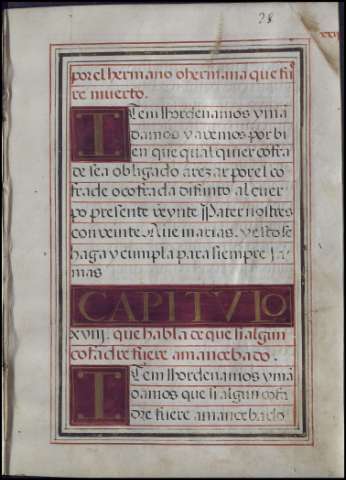 28
por el hermano o hermana que fue
re muerto.
Item hordenamos y mā
damos y avemos por bi
en que qual quier cofra
de sea obligado a rezar por el co
frade o cofrada difunto al cuer
po presente veynte Pater nostres
con veinte Ave marias. y esto se
haga y cumpla para siempre ja
mas
CAPITVLO
xviii. que habla de que si algun
cofadre fuere amancebado.
Item hordenamos y mā
damos que si algun cofa
dre fuere amancebado